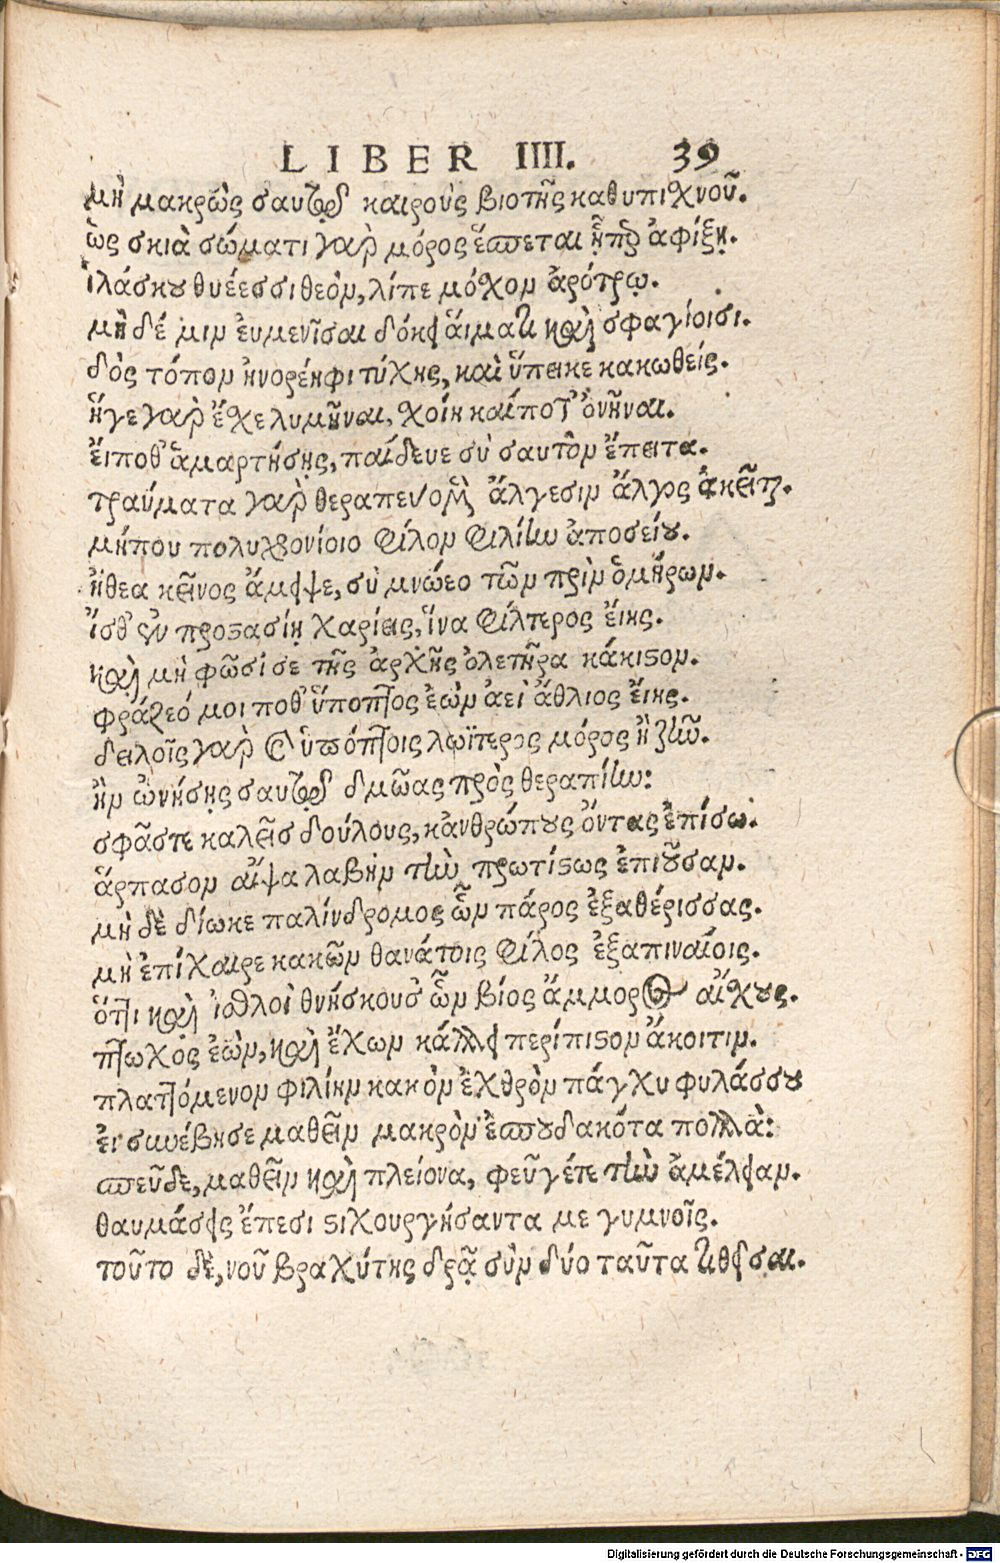 LIBER IIII. 39
μὴ μακρὼς σαυτῷ καιροὺς βιοτῆς καθυπιχνοῦ.
ὡς σκιὰ σώματι γαρ μόρος ἕσπεται ᾗπερ ἀφίξῃ.
ἱλάσκου θυέεσσι θεὸν, λίπε μόχον ἀρότρῳ.
μὴ δέ μιν εὐμενῖσαι δόκει ἅιματι καὶ σφαγίοισι.
δὸς τόπον ἠνορέηφι τύχης, καὶ ὕπεικε κακωθείς.
ἥγε γὰρ ἔχε λυμῆναι, χοίη καίποτ' ὀνῆναι.
ἔιποθ' ἁμαρτήσῃς, παίδευε σὺ σαυτὸν ἔπειτα.
τραύματα γὰρ θεραπευομένων ἄλγεσιν ἄλγος ἀκεῖται.
μήπου πολυχρονίοιο φίλον φιλίην ἀποσείου.
ἤθεα κεῖνος ἄμειψε, σὺ μνώεο τῶν πρὶν ὁμήρων.
ἴσθ' ἐν προστασίῃ χαρίεις, ἵνα φίλτερος ἔιης.
καὶ μὴ φῶσί σε τῆς ἀρχῆς ὀλετῆρα κάκιστον.
φράζεό μοι ποθ' ὕποπτος ἐὼν ἀεὶ ἄθλιος ἔιης.
δειλοῖς γὰρ καὶ ὑπόπτοις λωΐτερος μόρος ἢ ζῆν.
ἢν ὠνήσῃς σαυτῷ δμῶας πρὸς θεραπίην:
σφᾶς τε καλεῖς δούλους, κἀνθρώπους ὄντας ἐπίσω.
ἅρπασον αἶψα λαβὴν τὴν πρωτίστως ἐπιοῦσαν.
μὴ δὲ δίωκε παλίνδρομος ὧν πάρος ἐξαθέρισσας.
μὴ ἐπίχαιρε κακῶν θανάτοις φίλος ἐξαπιναίοις.
ὅττι καὶ ἰσθλοὶ θνήσκουσ' ὧν βίος ἄμμορος αἴχους.
πτωχὸς ἐὼν, καὶ ἔχων κάλλει περίπιστον ἄκοιτιν.
πλαττόμενον φιλίην κακὸν ἐχθρὸν πάγχυ φυλάσσου
εἰ συνέβησε μαθεῖν μακρὸν ἐσπουδακότα πολλὰ:
σπεῦδε, μαθεῖν καὶ πλείονα, φεῦγέ τε τὴν ἀμέλειαν.
θαυμάσεις ἔπεσι στιχουργήσαντα με γυμνοῖς.
τοῦτο δὲ, νοῦ βραχύτης δρᾷ σὺν δύο ταῦτα τιθεῖσαι.
Digitalisierung gefördert durch die Deutsche Forschungsgemeinschaft - DFG